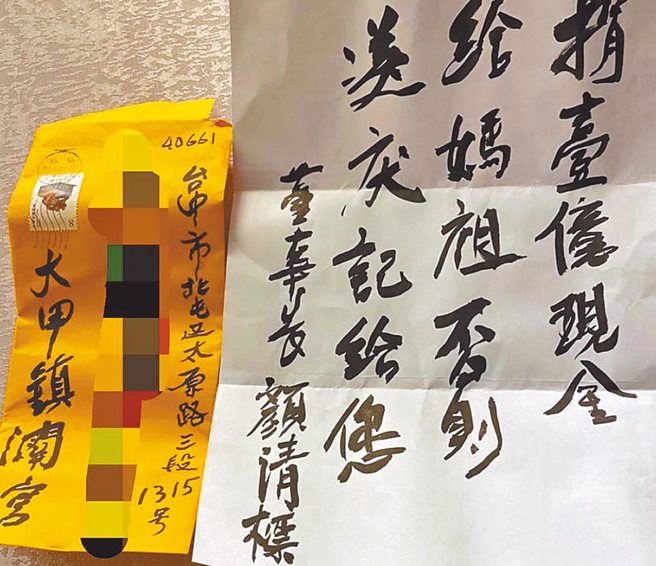 捐壹億現金
給媽祖否則
灰記給您
董事长顏清標
40661
台中市北屯区太原路三段
1315
号
大甲鎮瀾宮